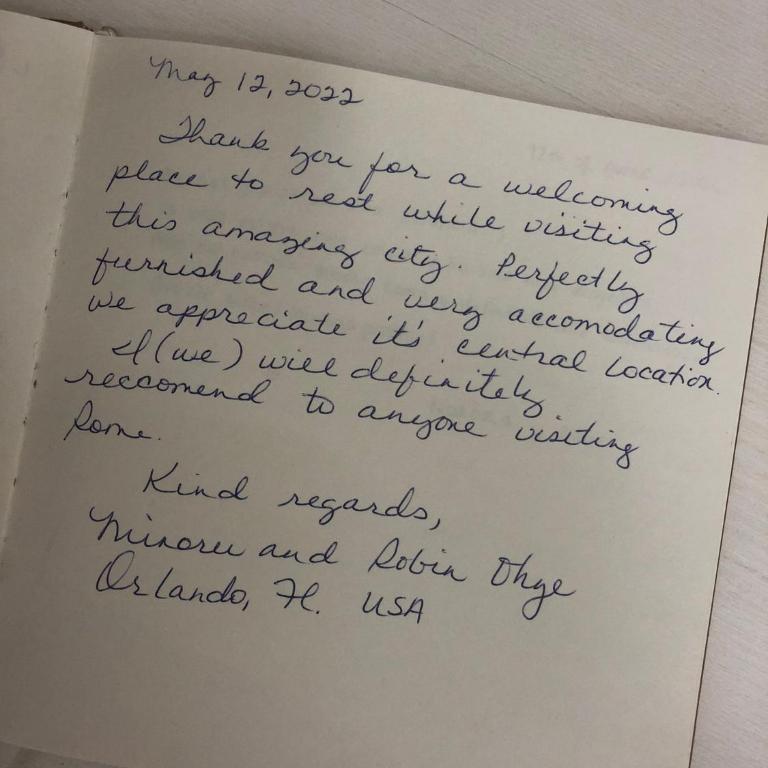 May 12, 2022
Thank you for a welcoming
place to rest while visiting
this amazing city. Perfectly
furnished and very accomodating
we appreciate it's central location.
I (we) will definitely
reccomend to anyone visiting
Rome.
Kind regards,
Minoru and Robin Ohye
Orlando, Fl. USA